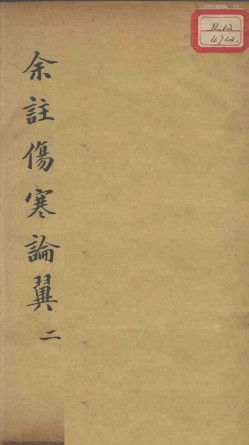 余註傷寒論翼 二